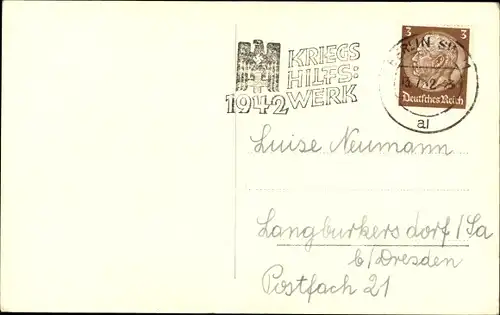 KRIEGS
HILFS:
1942 WERK
3 3
BERLIN
Deutsches Reich
al
Luise Neumann
Langburkersdorf/Sa
b/Dresden
Postfach 21